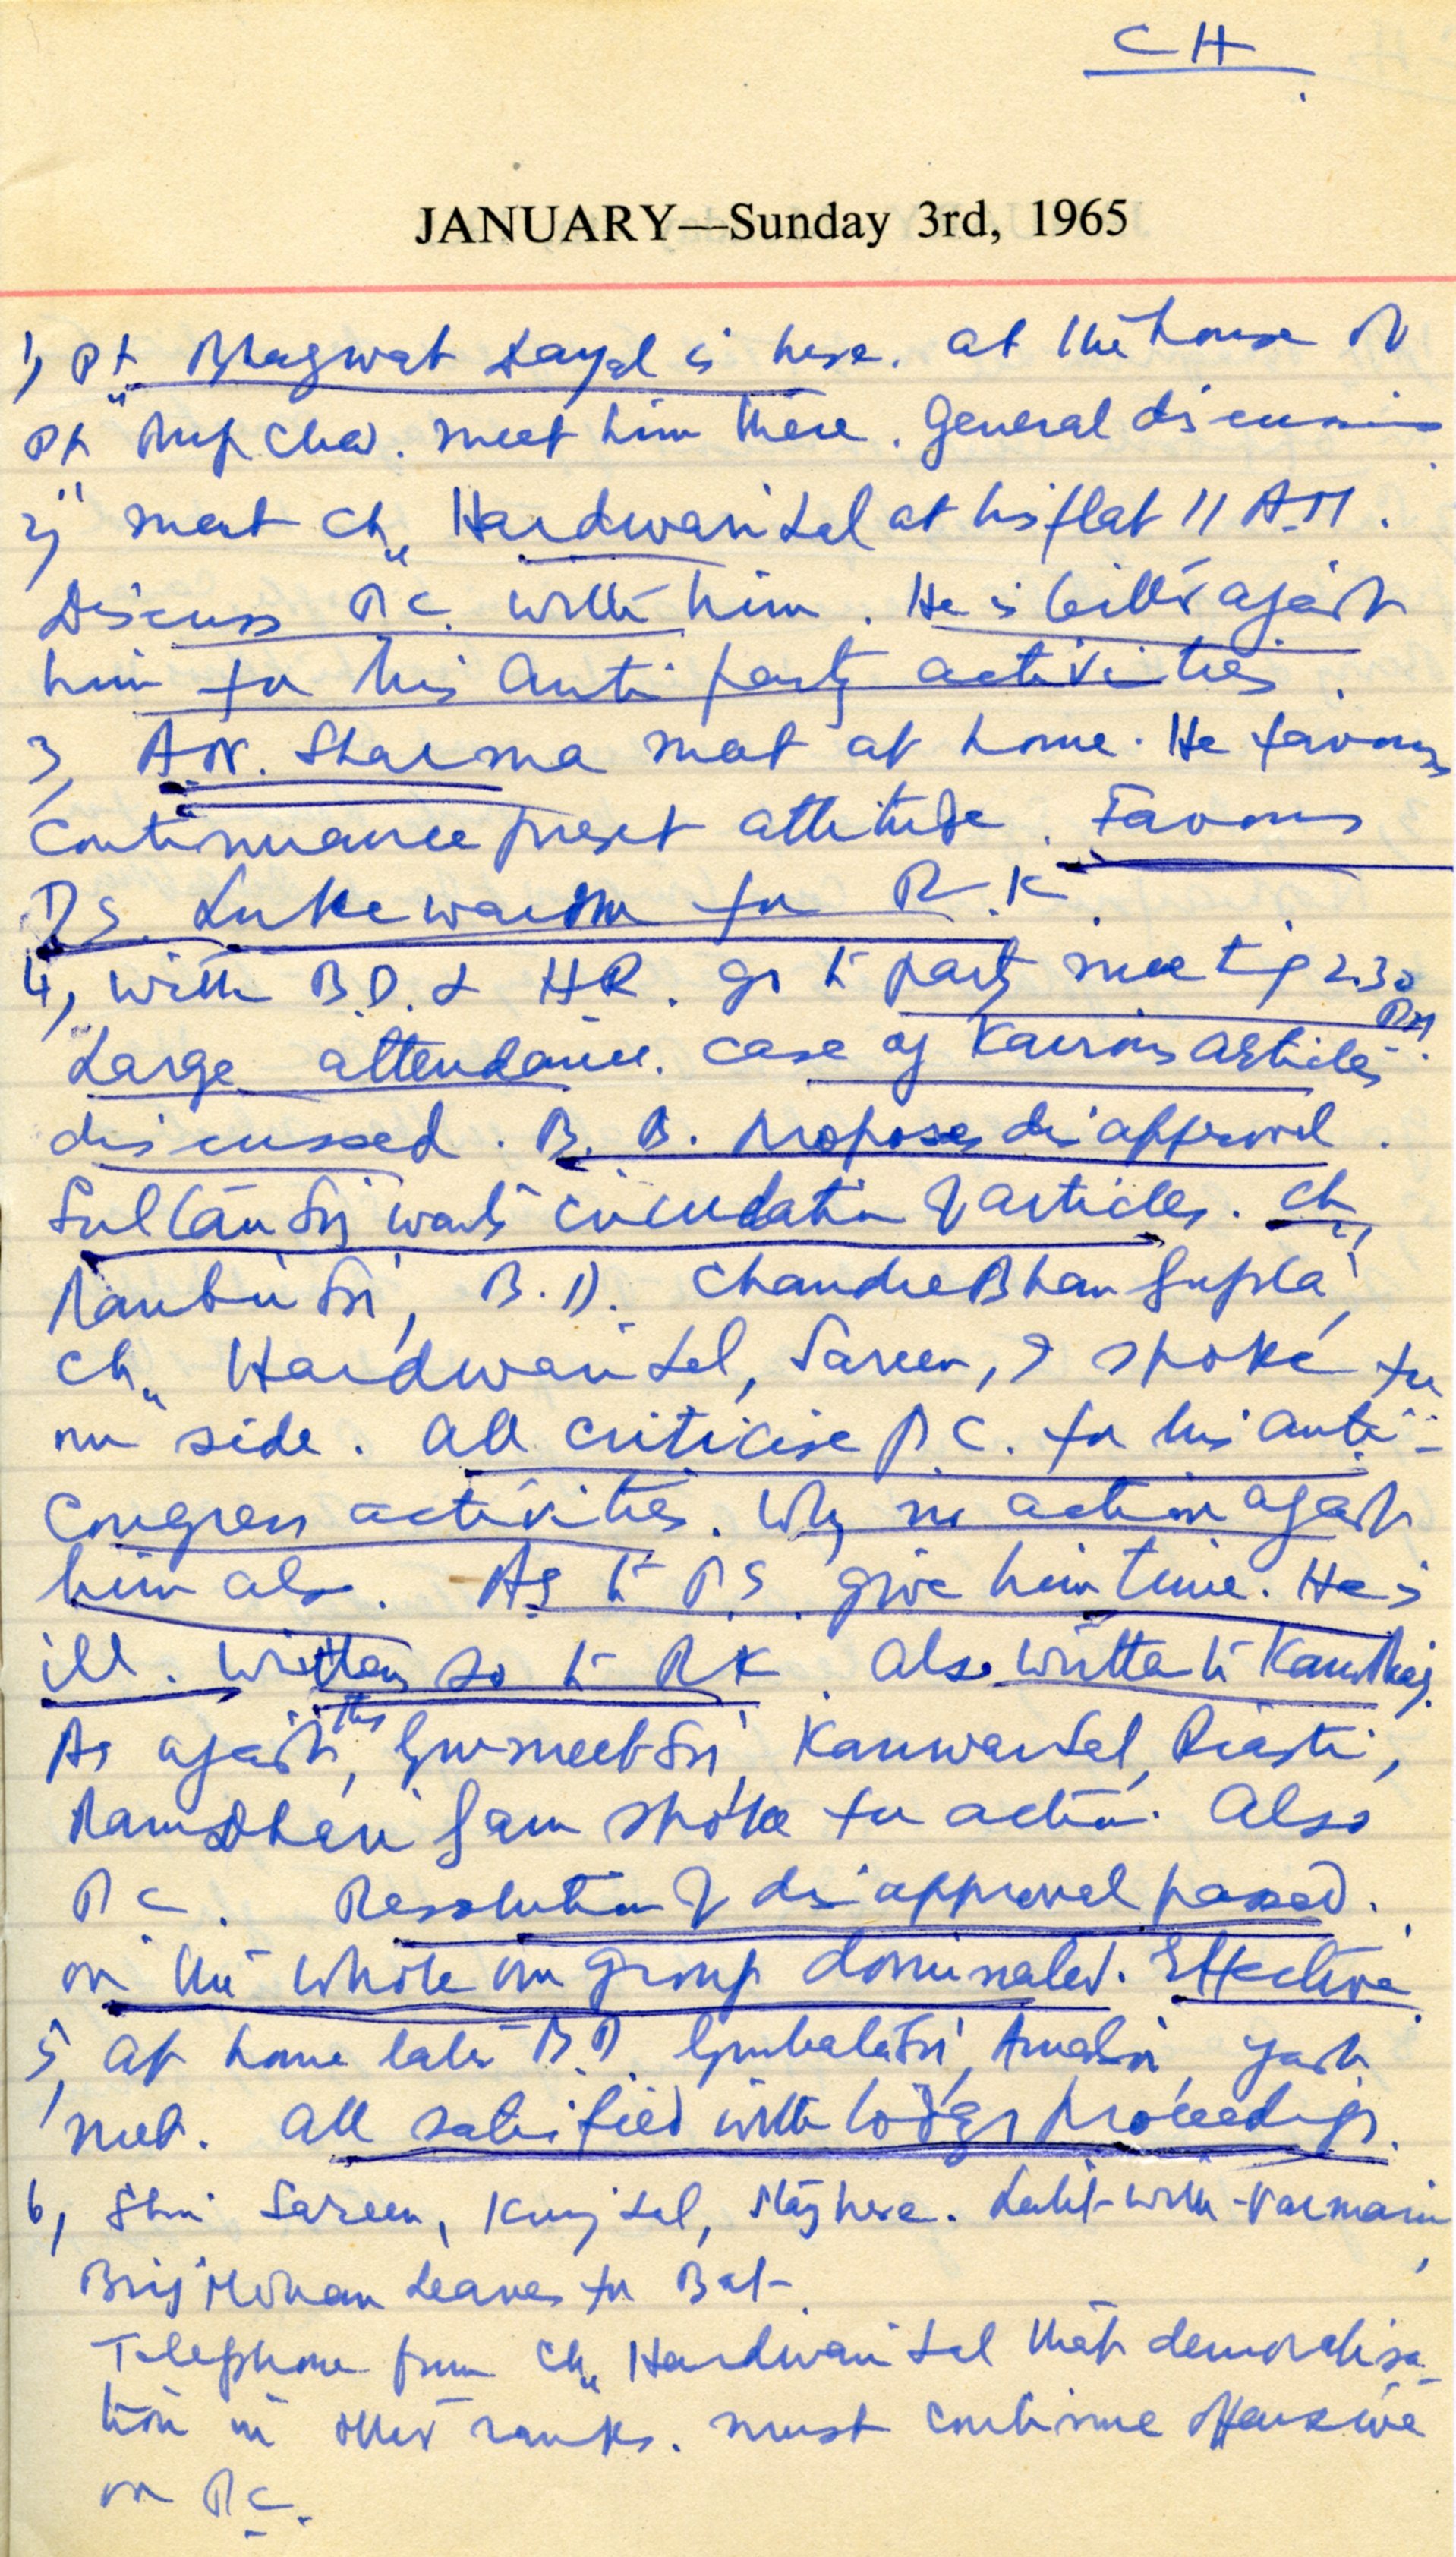 CH
JANUARY—Sunday 3rd, 1965
1, Pt Bhagwat Dayal is here. at the house of
Pt Rup Chad. meet him there. General discussion
2, meet Ch. Hardwari Lal at his flat 11 AM.
Discuss P.C. with him. He is bitter against
him for his anti party activities.
3, A.N. Sharma meet at home. He favours
continuance present attitude. Favours
DS. Lukewarm for R.K.
4, with B.D. & HR. go to party meeting 2.30 PM
Large attendance. case of Kairon's articles
discussed. B. B. proposes disapproval.
Sultan Sn wants circulation of articles. Ch.
Ranbir Sn, B.D. Chandra Bhan Gupta,
Ch. Hardwari Lal, Sareen, & spoke for
our side. All criticise P.C. for his anti-
Congress activities. Why no action against
him also. As to P.S. give him time. He is
ill. Written so to RK. Also written to Kamraj.
As against this, Gurmeet Sn, Kanwar Lal, Riasti,
Ram Dhari Gaur spoke for action. Also
P.C. Resolution of disapproval passed.
on the whole our group dominated. Effective
5, At home later B.D. Gurbala Sn, Amar Sn, Yash
meet. All satisfied with today's proceedings.
6, Shri Sareen, Kunj Lal, here. Lalit with
Brij Mohan leaves for Bat-
Telephone from Ch. Hardwari Lal that demoralisa-
tion in other ranks. must continue offensive
on P.C.